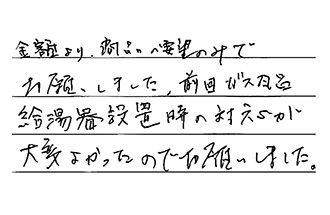 金額より、商品の要望のみで
お願いしました。前回ガス風呂
給湯器設置時の対応が
大変よかったのでお願いしました。